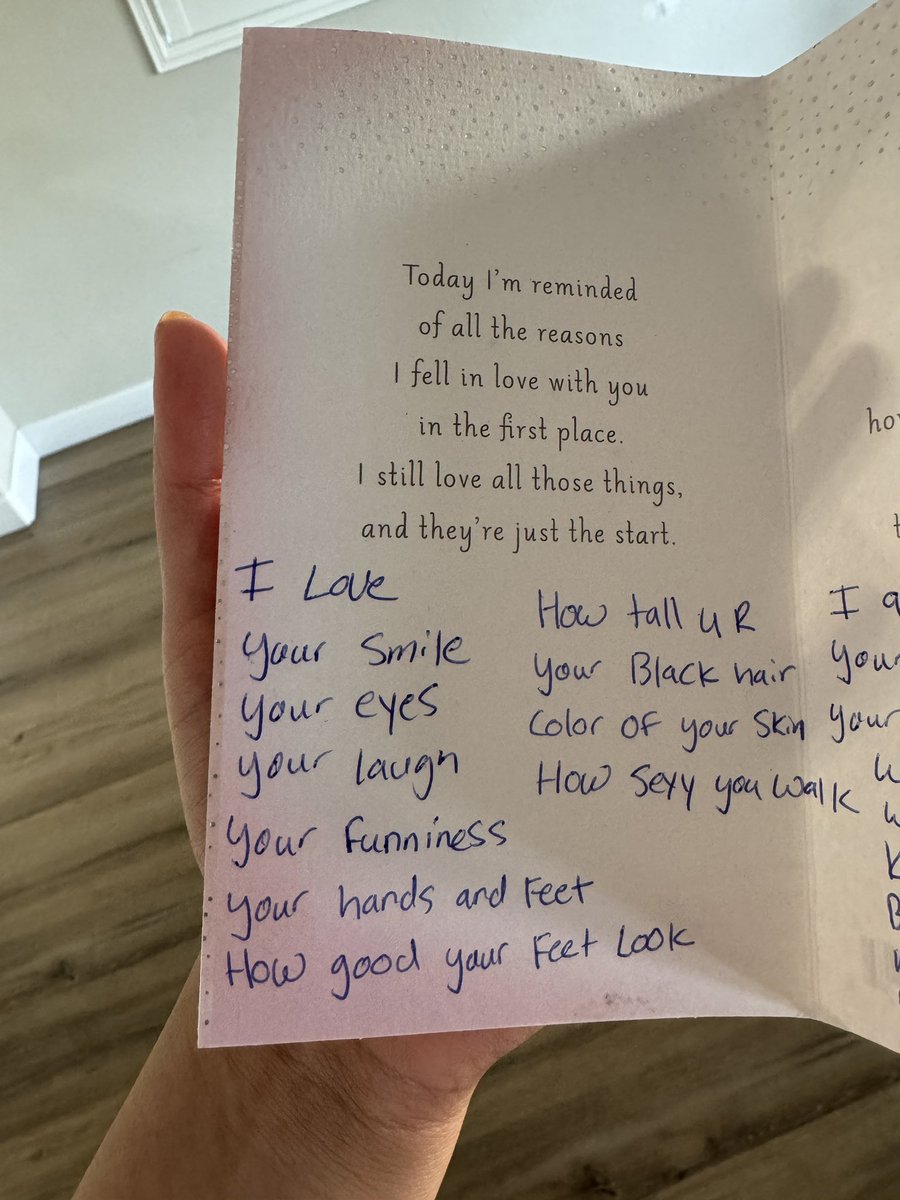 Today I'm reminded
of all the reasons
I fell in love with you
in the first place.
I still love all those things,
and they're just the start.
I Love
your Smile
your eyes
your laugh
your funniness
your hands and Feet
How good your Feet Look
How tall U R
your Black hair
Color OF your Skin
How Sexy you walk
I
your
your